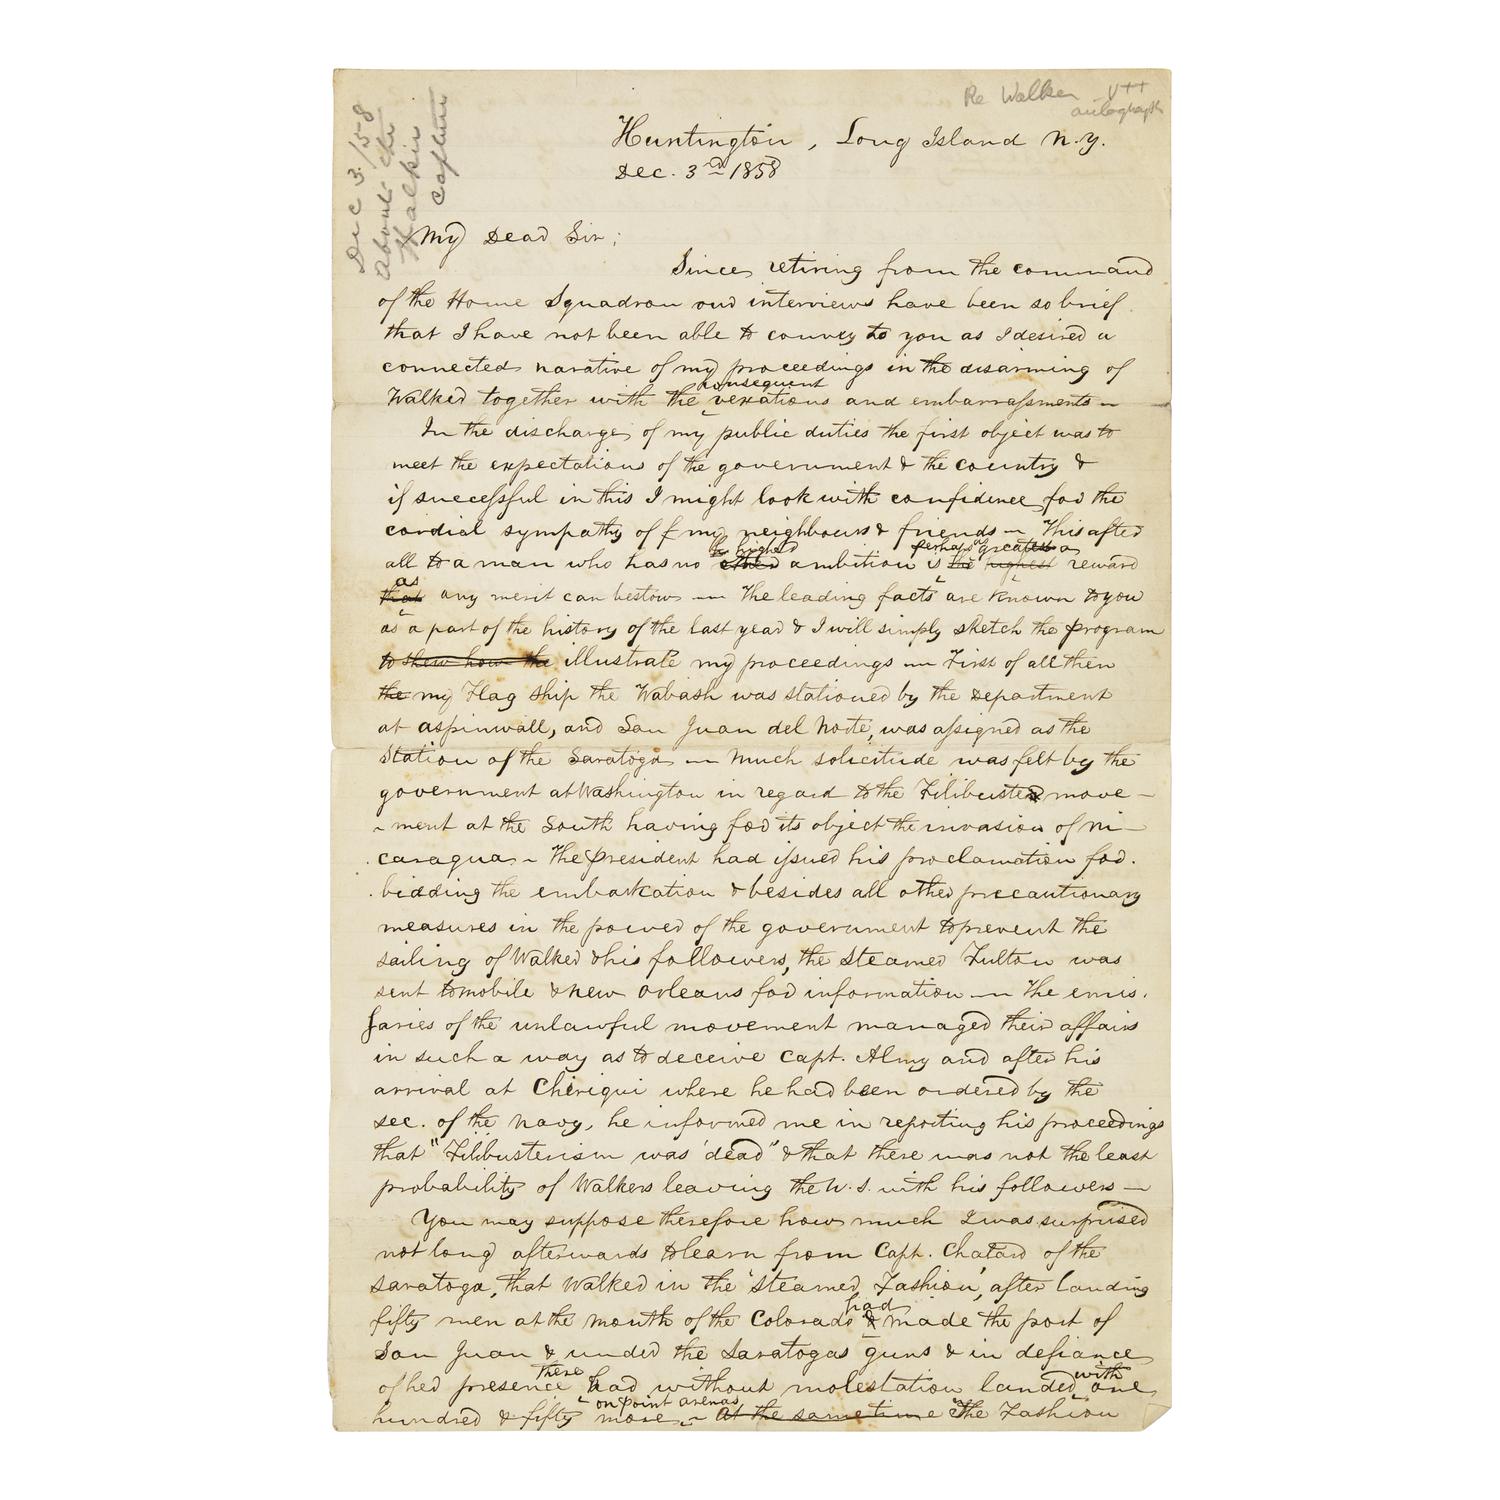 Re Walker
autograph
Dec 3. 1858
about the
Walker
capture
Huntington, Long Island N.Y.
Dec. 3rd 1858
My Dear Sir;
Since retiring from the command
of the Home Squadron our interviews have been so brief
that I have not been able to convey to you as I desired a
connected narative of my proceedings in the disarming of
consequent
Walker together with the vexations and embarrassments —
In the discharge of my public duties the first object was to
meet the expectations of the government & the country &
if successful in this I might look with confidence for the
cordial sympathy of my neighbours & friends — This after
higher perhaps as great a
all to a man who has no other ambition is the highest reward
as
that any merit can bestow — The leading facts are known to you
as a part of the history of the last year & I will simply sketch the program
to shew how the illustrate my proceedings — First of all then
the my Flag Ship the Wabash was stationed by the Department
at aspinwall, and San Juan del Norte, was assigned as the
Station of the Saratoga — Much solicitude was felt by the
government at Washington in regard to the Filibuster move-
-ment at the South having for its object the invasion of Ni-
caragua — The President had issued his proclamation for-
bidding the embarkation & besides all other precautionary
measures in the power of the government to prevent the
sailing of Walker & his followers, the steamer Fulton was
sent to mobile & New Orleans for information — The emis-
saries of the unlawful movement managed their affairs
in such a way as to deceive Capt. Almy and after his
arrival at Chiriqui where he had been ordered by the
Sec. of the Navy, he informed me in reporting his proceedings
that "Filibusterism was dead" & that there was not the least
probability of Walkers leaving the U.S. with his followers —
You may suppose therefore how much I was surprised
not long afterwards to learn from Capt. Chatard of the
Saratoga, that Walker in the steamer Fashion, after landing
had
fifty men at the mouth of the Colorado & made the port of
San Juan & under the Saratogas guns & in defiance
there with
of her presence had without molestation landed one
on Point arenas
hundred & fifty more — At the same time The Fashion